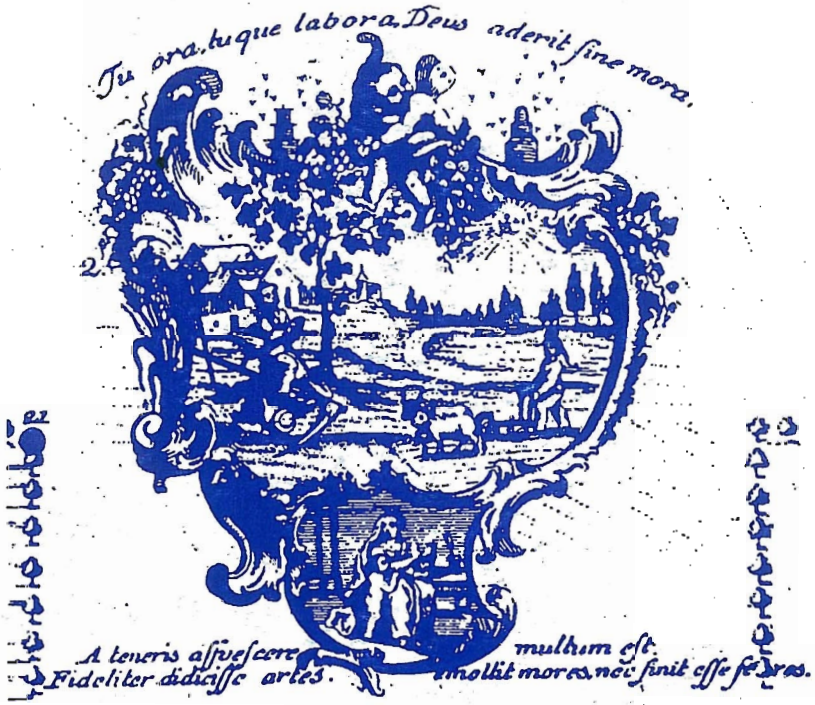 Tu ora, tuque labora, Deus aderit ſine mora.
2.
A teneris aſſueſcere multum eſt.
Fideliter didiciſſe artes. emollit mores, nec ſinit eſſe feros.